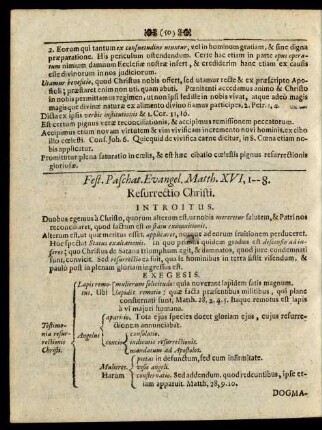 (10)
2. Eorum qui tantum ex consuetudine utuntur, vel in hominum gratiam, & sine digna
præparatione. His periculum ostendendum. Certe hac etiam in parte opus operatum
nimium damnum Ecclesiæ nostræ infert, & crediderim hanc etiam ex causis
esse divinorum in nos judiciorum.
Utamur beneficio, quod Christus nobis offert, sed utamur recte & ex præscripto Apostoli;
præstaret enim non uti, quam abuti. Pœnitenti accedamus animo & Christo
in nobis permittamus regimen, ut non ipsi sed ille in nobis vivat, atque adeo magis
magisque divinæ naturæ ex alimento divino fiamus participes. 2. Petr. 1, 4.
Dicta ex ipsis verbis institutionis & 1. Cor. 11, 16.
Est certum pignus veræ reconciliationis, & accipimus remissionem peccatorum.
Accipimus etiam novam virtutem & vim vivificam incremento novi hominis, ex cibo
illo cœlesti. Conf. Joh. 6. Quicquid de vivifica carne dicitur, in S. Cœna etiam nobis
applicatur.
Promittitur plena saturatio in cœlis, & est hæc cibatio cœlestis pignus resurrectionis
gloriosæ.
Fest. Paschat. Evangel. Matth. XVI, 1--8.
Resurrectio Christi.
INTROITUS.
Duobus egemus à Christo, quorum alterum est, ut nobis mereretur salutem, & Patri nos
reconciliaret, quod factum est in statu exinanitionis.
Alterum est, ut quæ meritus esset, applicaret, nosque adeo eorum fruitionem perduceret.
Huc spectat Status exaltationis. in quo primus quidem gradus est descensio ad inferos;
quo Christus de Satana triumphum egit, & damnatos, quod jure condemnati
sunt, convicit. Sed resurrectio ea fuit, qua se hominibus in terra sistit vivendum, &
paulo post in plenam gloriam ingressus est.
EXEGESIS.
Testimonia resurrectionis Christi.
Lapis remotus. Ubi
mulierum solicitudo: quia noverant lapidem satis magnum.
lapidis remotio: quæ facta præsentibus militibus, qui plane
consternati sunt, Matth. 28, 2. 4. 5. Itaque remotus est lapis
à vi majori humana.
Angelus
apparitio. Tota ejus species docet gloriam ejus, cujus resurrectionem
annunciabat.
concio
consolatio.
indicatio resurrectionis.
mandatum ad Apostolos.
Mulieres. Harum
pietas in defunctum, sed cum infirmitate.
visio angeli.
consternatio. Sed addendum, quod redeuntibus, ipse etiam
apparuit. Matth. 28, 9. 10.
DOGMA-